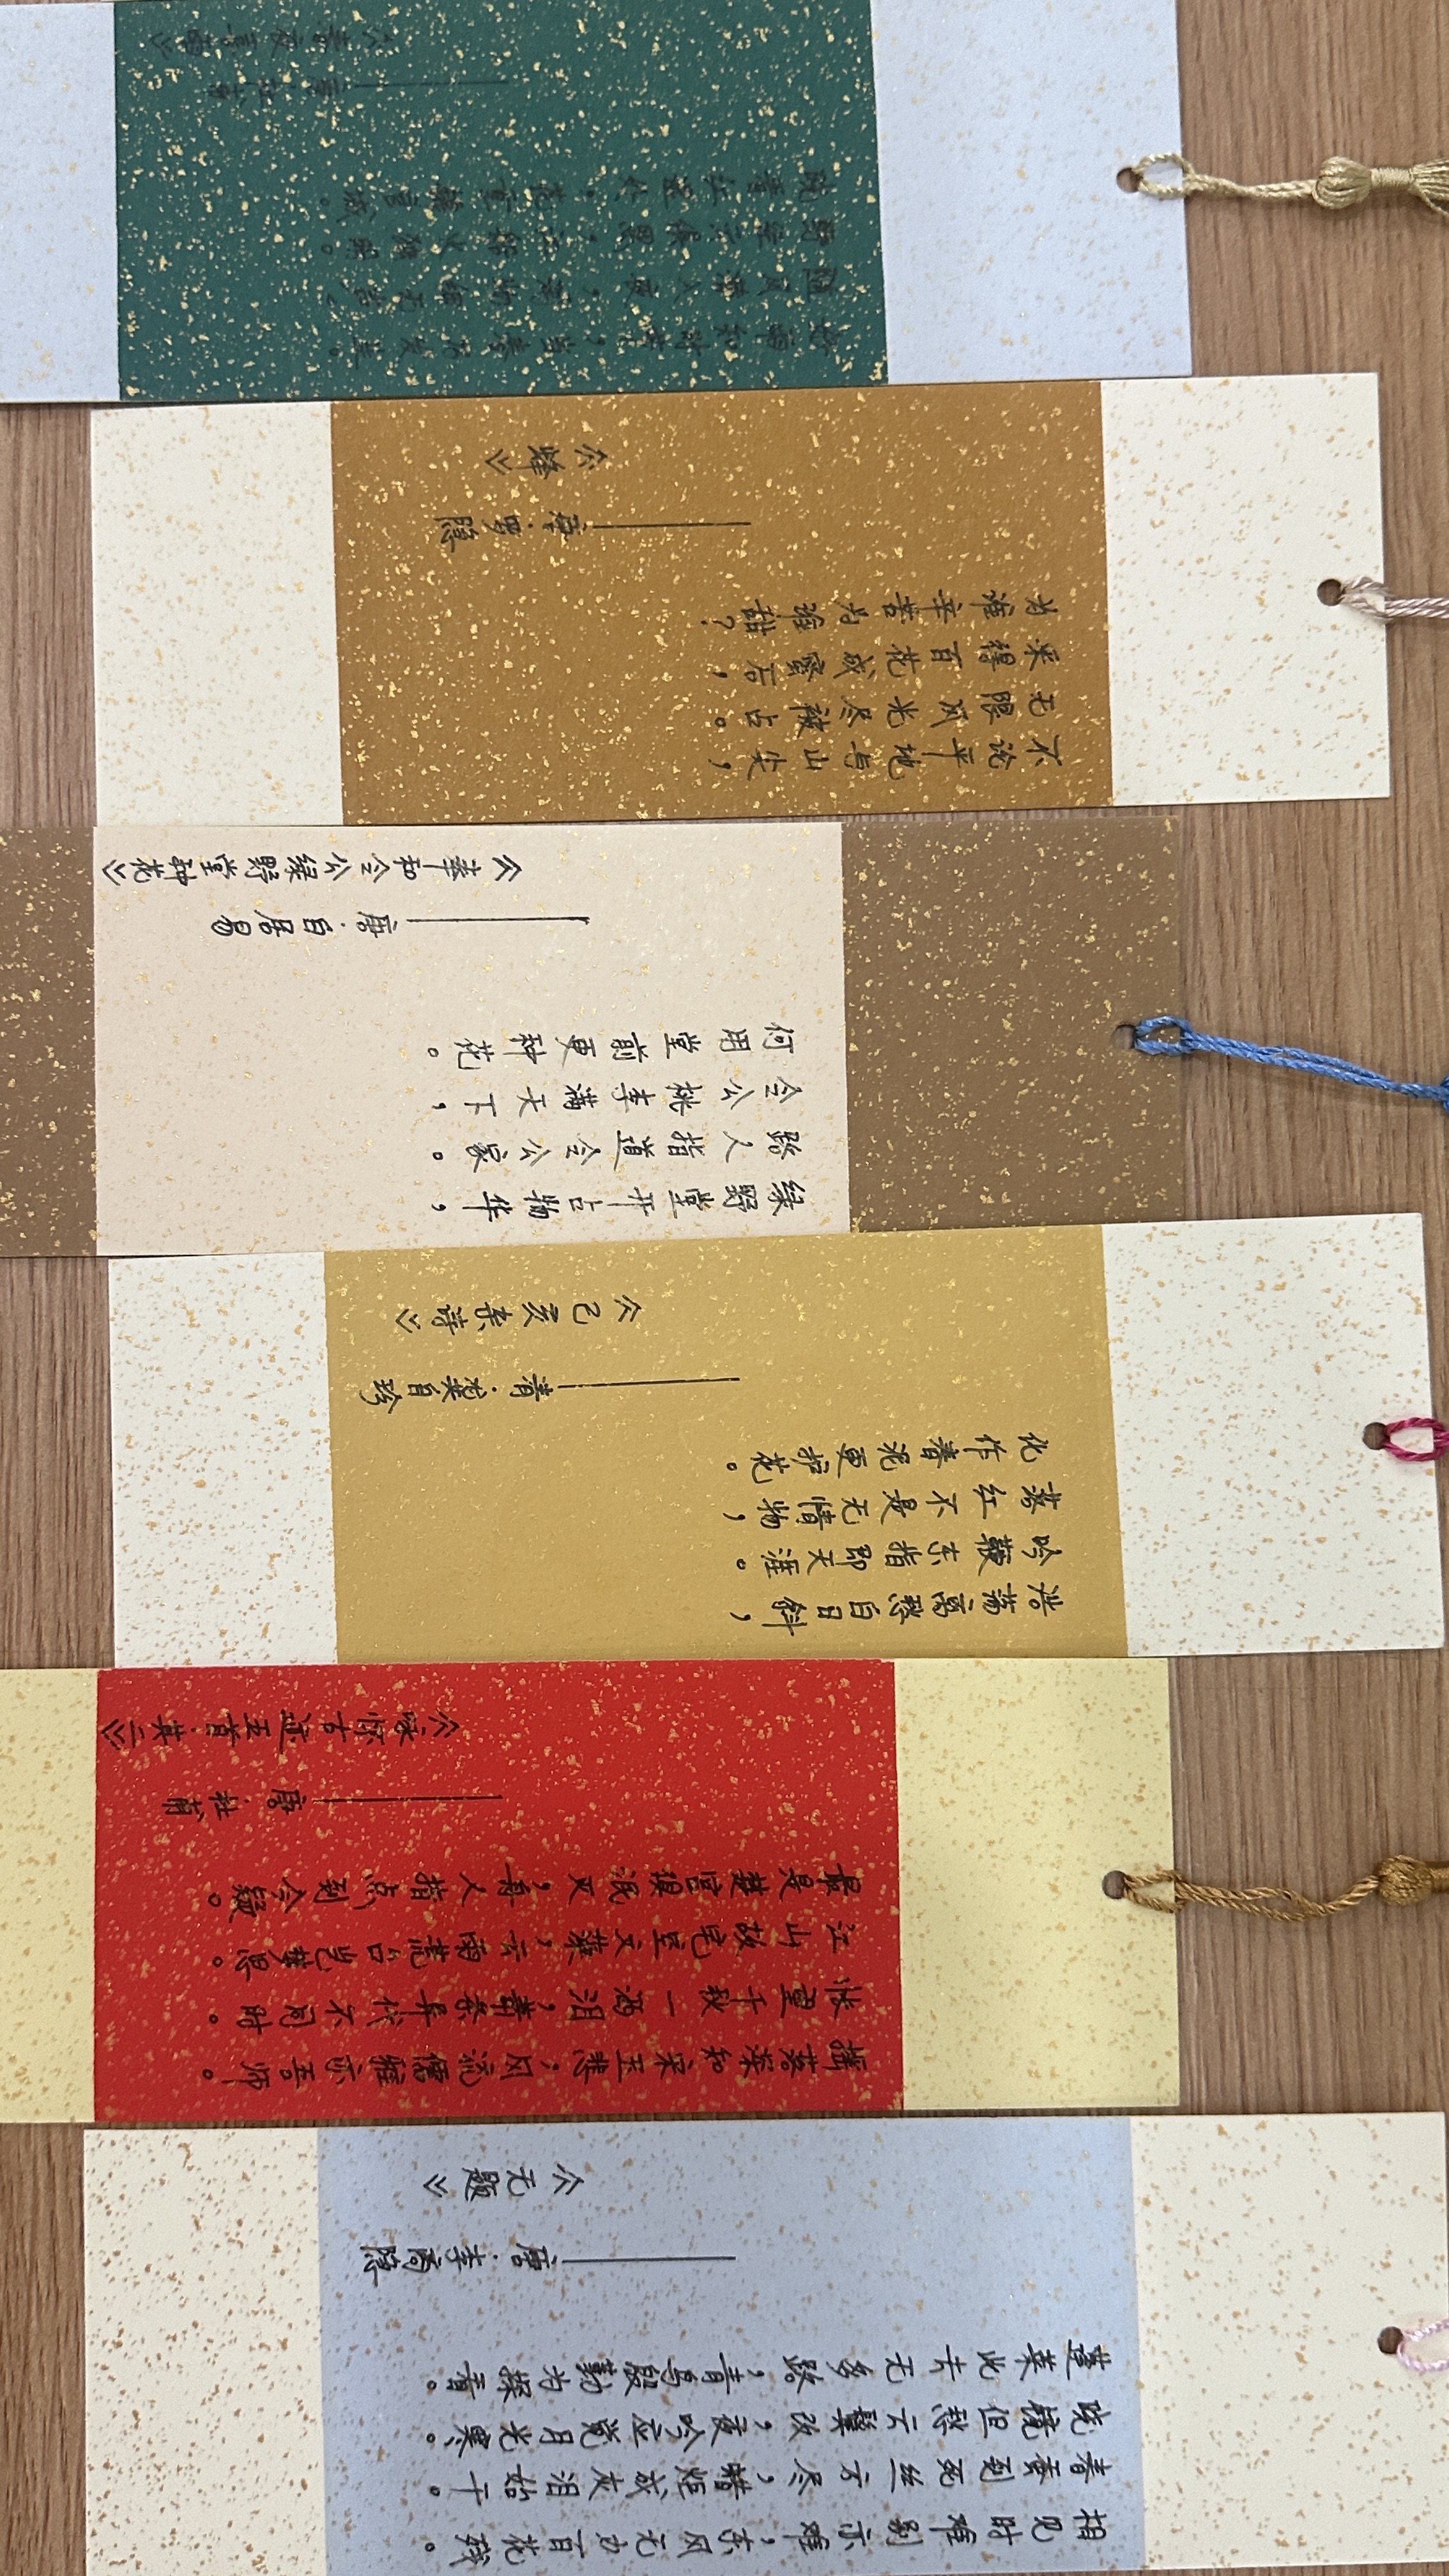 相见时难别亦难，东风无力百花残。
春蚕到死丝方尽，蜡炬成灰泪始干。
晓镜但愁云鬓改，夜吟应觉月光寒。
蓬莱此去无多路，青鸟殷勤为探看。
——唐·李商隐
《无题》
摇落深知宋玉悲，风流儒雅亦吾师。
怅望千秋一洒泪，萧条异代不同时。
江山故宅空文藻，云雨荒台岂梦思。
最是楚宫俱泯灭，舟人指点到今疑。
——唐·杜甫
《咏怀古迹五首·其二》
浩荡离愁白日斜，
吟鞭东指即天涯。
落红不是无情物，
化作春泥更护花。
——清·龚自珍
《己亥杂诗》
绿野堂开占物华，
路人指道令公家。
令公桃李满天下，
何用堂前更种花。
——唐·白居易
《奉和令公绿野堂种花》
不论平地与山尖，
无限风光尽被占。
采得百花成蜜后，
为谁辛苦为谁甜？
——唐·罗隐
《蜂》
好雨知时节，当春乃发生。
随风潜入夜，润物细无声。
野径云俱黑，江船火独明。
晓看红湿处，花重锦官城。
——唐·杜甫
《春夜喜雨》